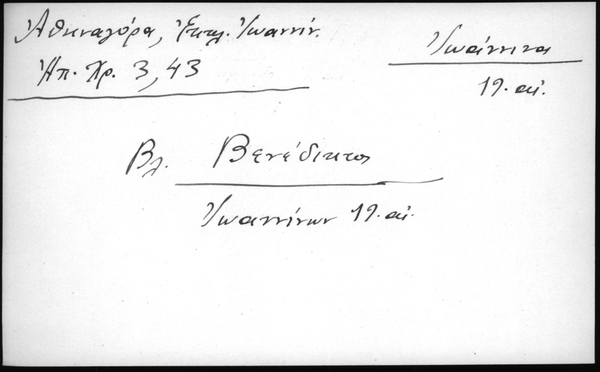 Ἀθηναγόρα, Ἐκκλ. Ἰωαννίν.
Ἠπ. Χρ. 3, 43
Ἰωάννινα
19. αἰ.
Βλ. Βενέδικτος
Ἰωαννίνων 19. αἰ.